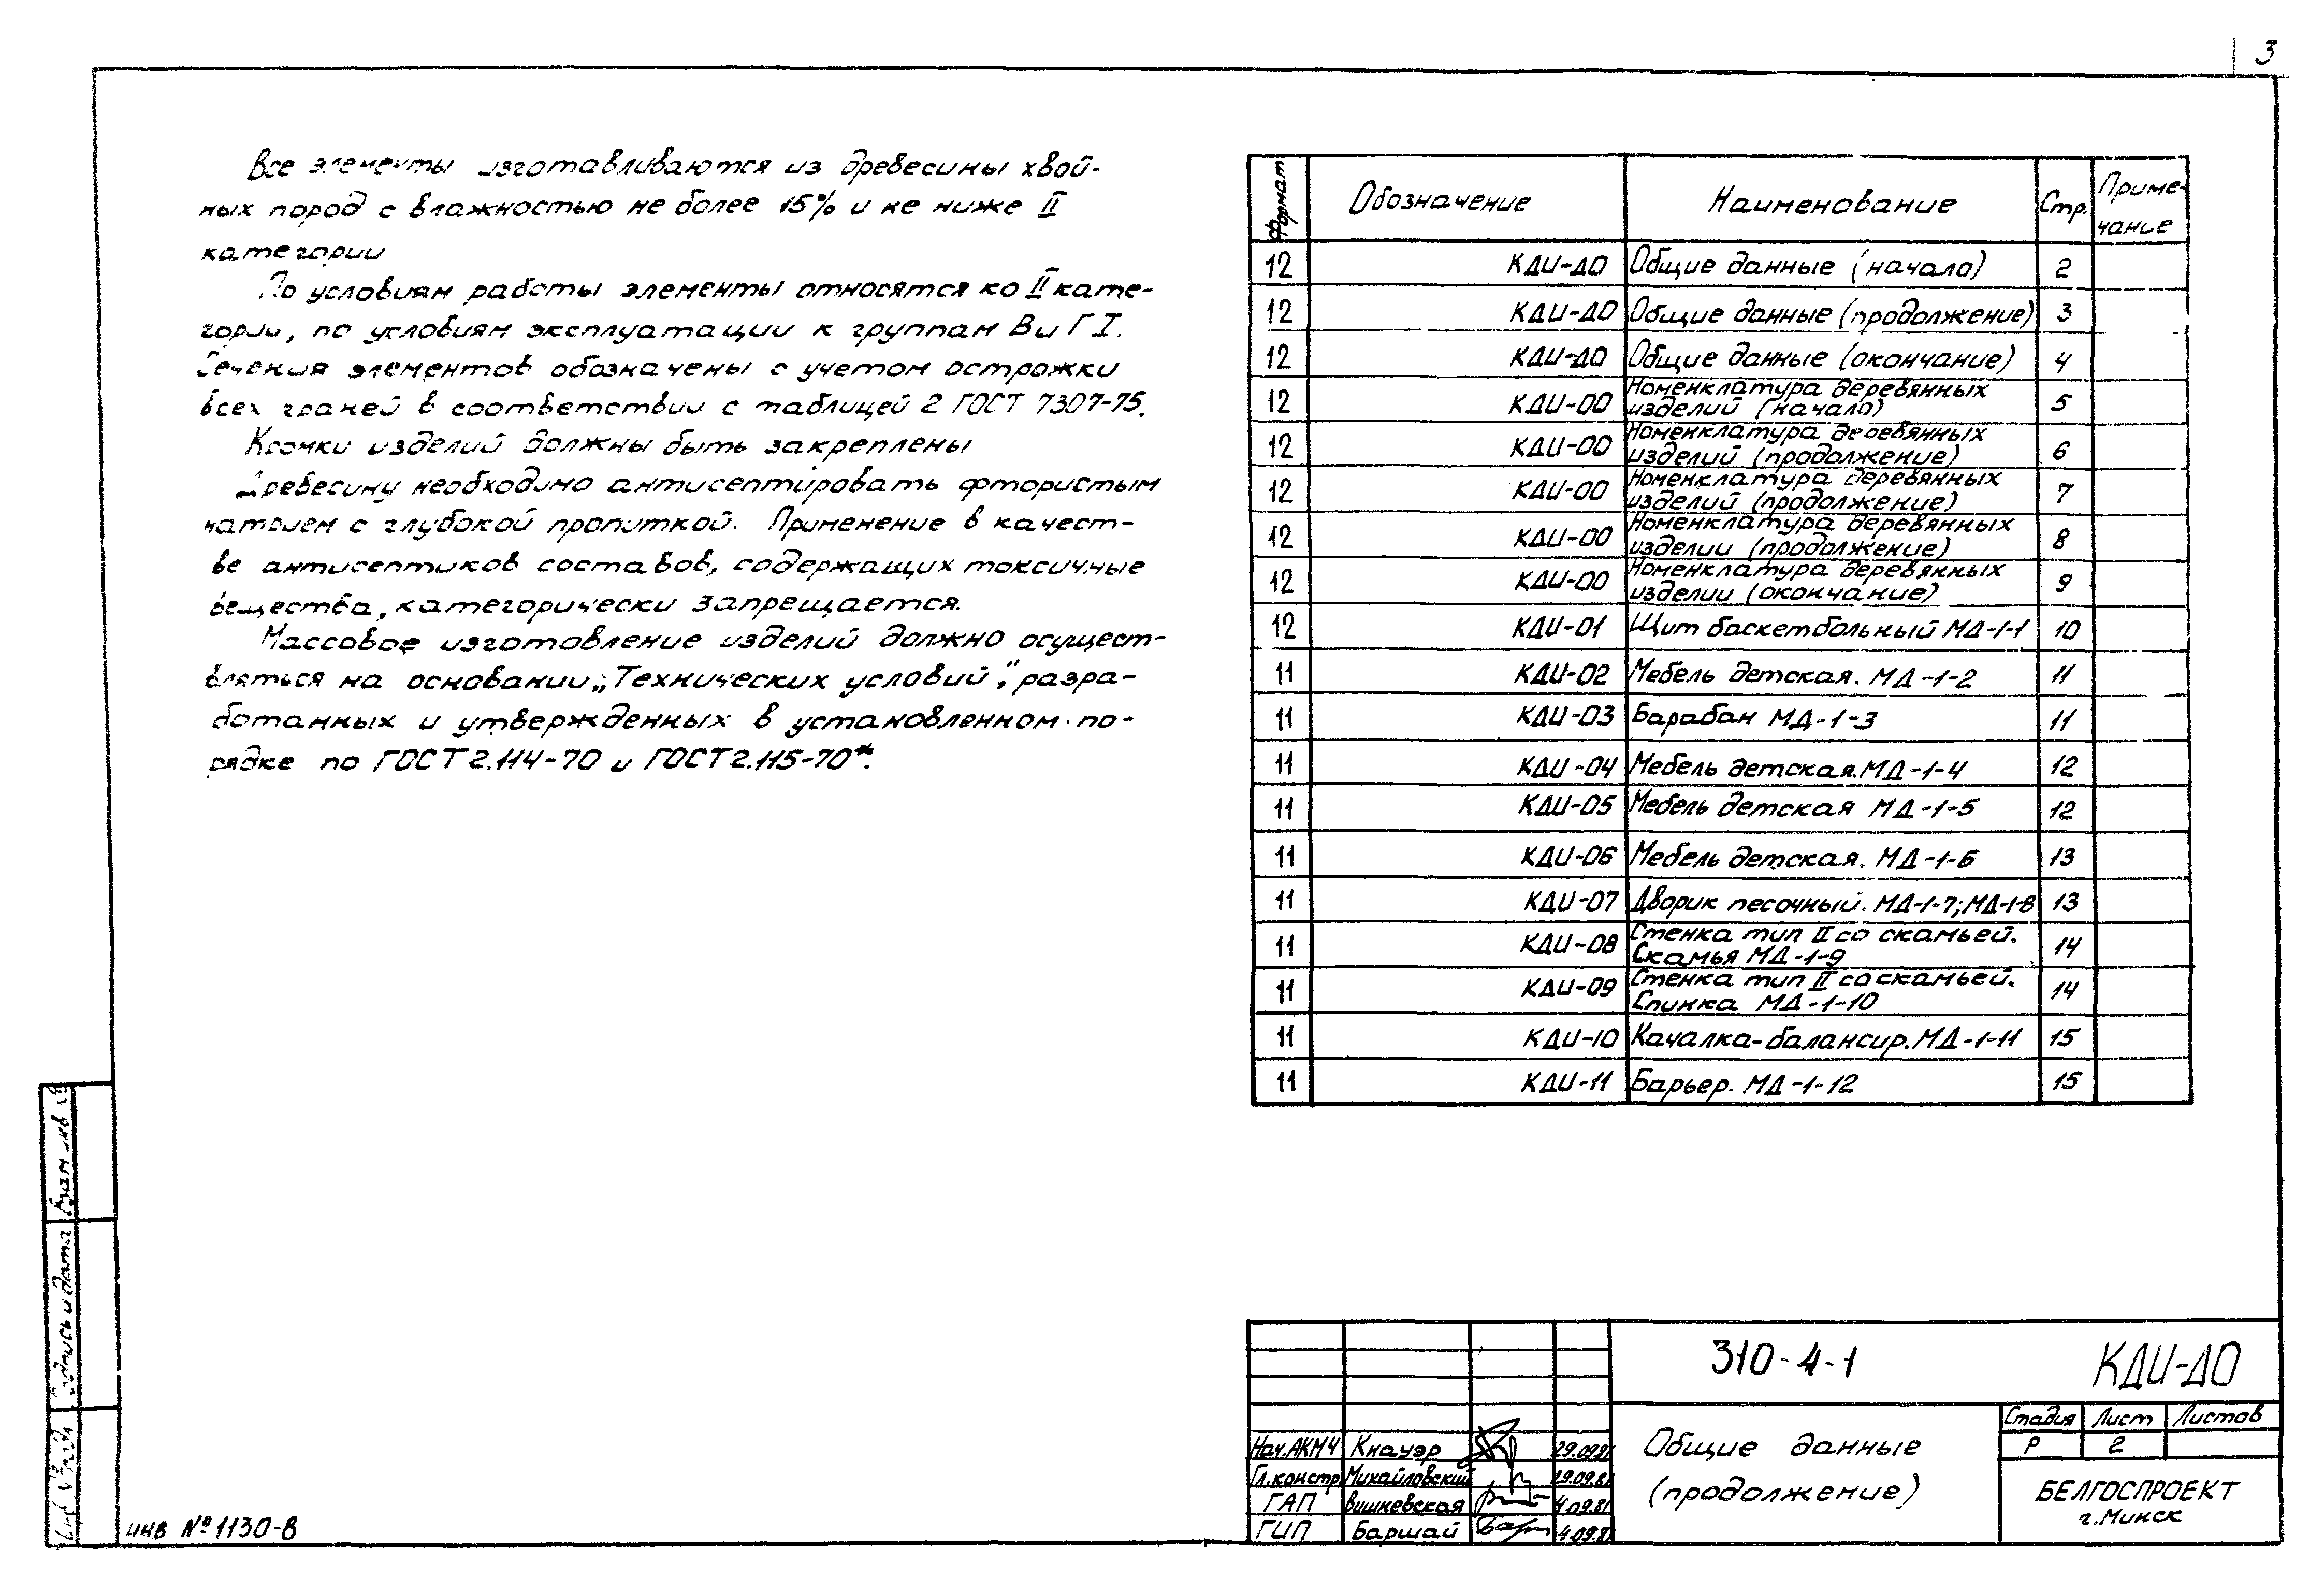 3
Все элементы изготавливаются из древесины хвой-
ных пород с влажностью не более 15% и не ниже II
категории
По условиям работы элементы относятся ко II кате-
гории, по условиям эксплуатации к группам В и Г I.
Сечения элементов обозначены с учетом острожки
всех граней в соответствии с таблицей 2 ГОСТ 7307-75.
Кромки изделий должны быть закреплены
Древесину необходимо антисептировать фтористым
натрием с глубокой пропиткой. Применение в качест-
ве антисептиков составов, содержащих токсичные
вещества, категорически запрещается.
Массовое изготовление изделий должно осущест-
вляться на основании „Технических условий", разра-
ботанных и утвержденных в установленном по-
рядке по ГОСТ 2.114-70 и ГОСТ 2.115-70*.
Формат Обозначение Наименование Стр. Приме-
чание
12 КДИ-ДО Общие данные (начало) 2
12 КДИ-ДО Общие данные (продолжение) 3
12 КДИ-ДО Общие данные (окончание) 4
12 КДИ-00 Номенклатура деревянных
изделий (начало) 5
12 КДИ-00 Номенклатура деревянных
изделий (продолжение) 6
12 КДИ-00 Номенклатура деревянных
изделий (продолжение) 7
12 КДИ-00 Номенклатура деревянных
изделии (продолжение) 8
12 КДИ-00 Номенклатура деревянных
изделии (окончание) 9
12 КДИ-01 Щит баскетбольный МД-1-1 10
11 КДИ-02 Мебель детская. МД-1-2 11
11 КДИ-03 Барабан МД-1-3 11
11 КДИ-04 Мебель детская. МД-1-4 12
11 КДИ-05 Мебель детская МД-1-5 12
11 КДИ-06 Мебель детская. МД-1-6 13
11 КДИ-07 Дворик песочный. МД-1-7; МД-1-8 13
11 КДИ-08 Стенка тип II со скамьей.
Скамья МД-1-9 14
11 КДИ-09 Стенка тип II со скамьей.
Спинка МД-1-10 14
11 КДИ-10 Качалка-балансир. МД-1-11 15
11 КДИ-11 Барьер. МД-1-12 15
310-4-1 КДИ-ДО
Общие данные
(продолжение)
Стадия Лист Листов
Р 2
БЕЛГОСПРОЕКТ
г. Минск
Нач.АКМ4 Кнауэр 29.09.81
Гл.констр. Михайловский 29.09.81
ГАП Вишневская 4.09.81
ГИП Баршай 4.09.81
Взам инв №
Подпись и дата
Инв № подл
инв № 1130-В